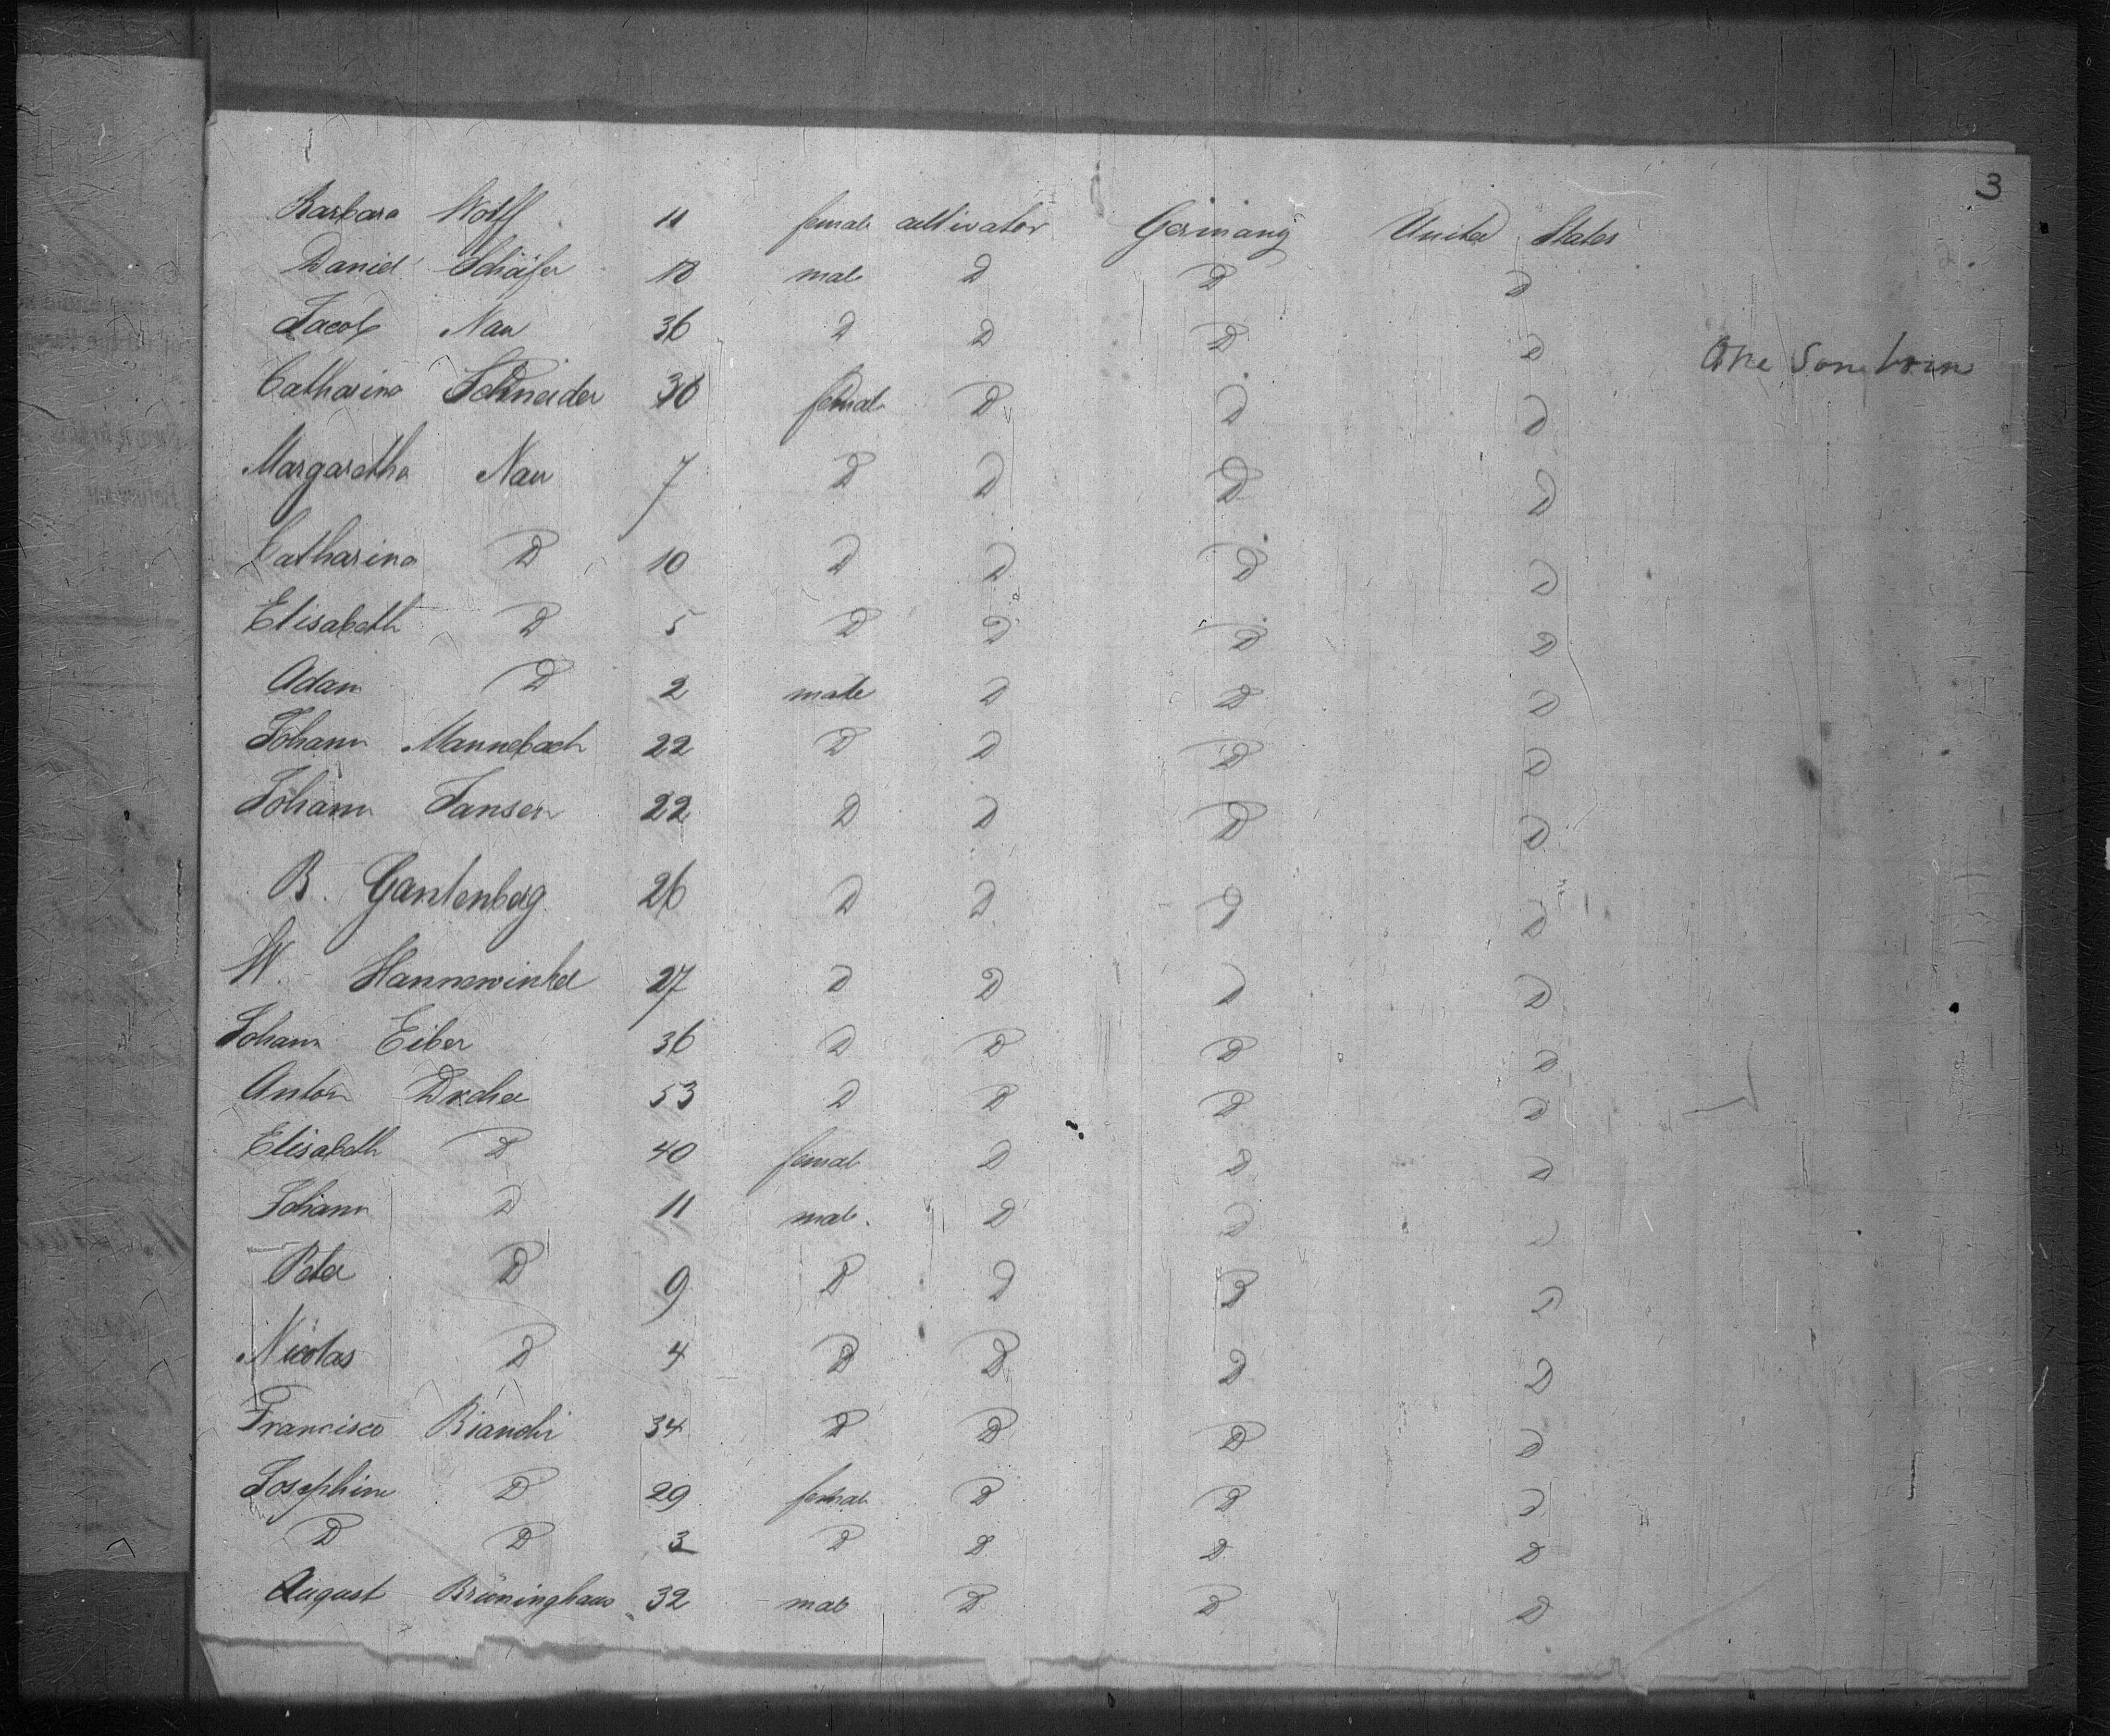 3
Barbara Wolff 11 female cultivator Germany United States
Daniel Schäfer 18 male D D D
Jacob Nau 36 D D D D One Son born
Catharina Schneider 36 female D D D
Margaretha Nau 7 D D D D
Catharina D 10 D D D D
Elisabeth D 5 D D D D
Adam D 2 male D D D
Johann Mannebach 22 D D D D
Johann Jansen 22 D D D D
B. Gantenberg 26 D D D D
W. Hannewinkel 27 D D D D
Johann Eiber 36 D D D D
Anton 53 D D D D
Elisabeth D 40 female D D D
Johann D 11 male D D D
Peter D 9 D D D D
Nicolas D 4 D D D D
Francisco Bianchi 34 D D D D
Josephine D 29 female D D D
D D 3 D D D D
August Brüninghaus 32 male D D D